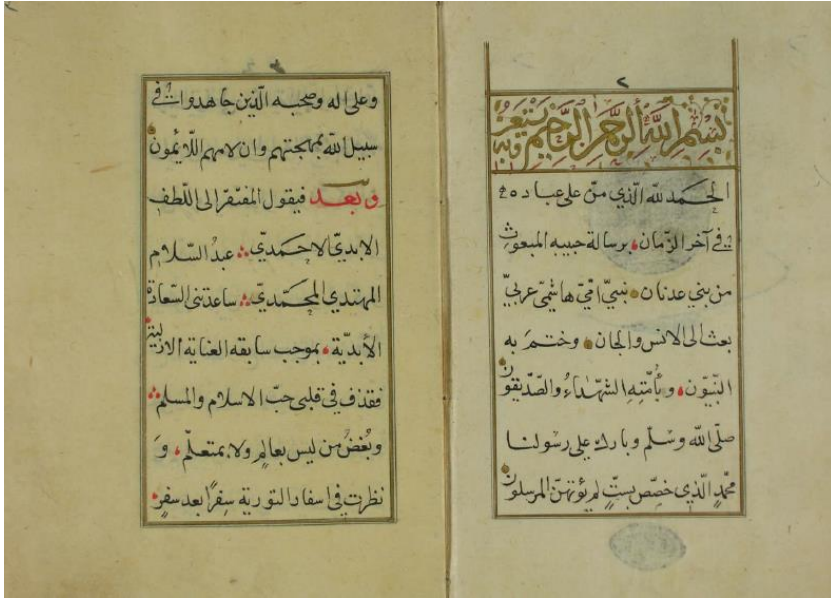 ٢
بسم الله الرحمن الرحيم نستعين
الحمد لله الذي من على عباده
في آخر الزمان برسالة حبيبه المبعوث
من بني عدنان نبيّ اميّ هاشميّ عربيّ
بعث الى الانس والجان وختم به
النبيّون وبأمّته الشهداءُ والصدّيقون
صلّى الله وسلّم وبارك على رسولنا
محمّدٍ الّذي خصّص بستٍّ لم يؤتهنّ المرسلون
وعلى اله وصحبه الّذين جاهدوا في
سبيل الله بمهجتهم وان لامهم اللّايمون
وبعد فيقول المفتقر الى اللّطف
الابديّ الاحمديّ عبدُ السّلام
المهتدي المحمّديّ ساعدتنى السّعادة
الأبديّة بموجب سابقه العناية الازلية
فقذف في قلبى حبّ الاسلام والمسلم
وبُغضُ من ليس بعالمٍ ولا بمتعلّم وَ
نظرت في اسفار التورية سِفرًا بعد سفرٍ